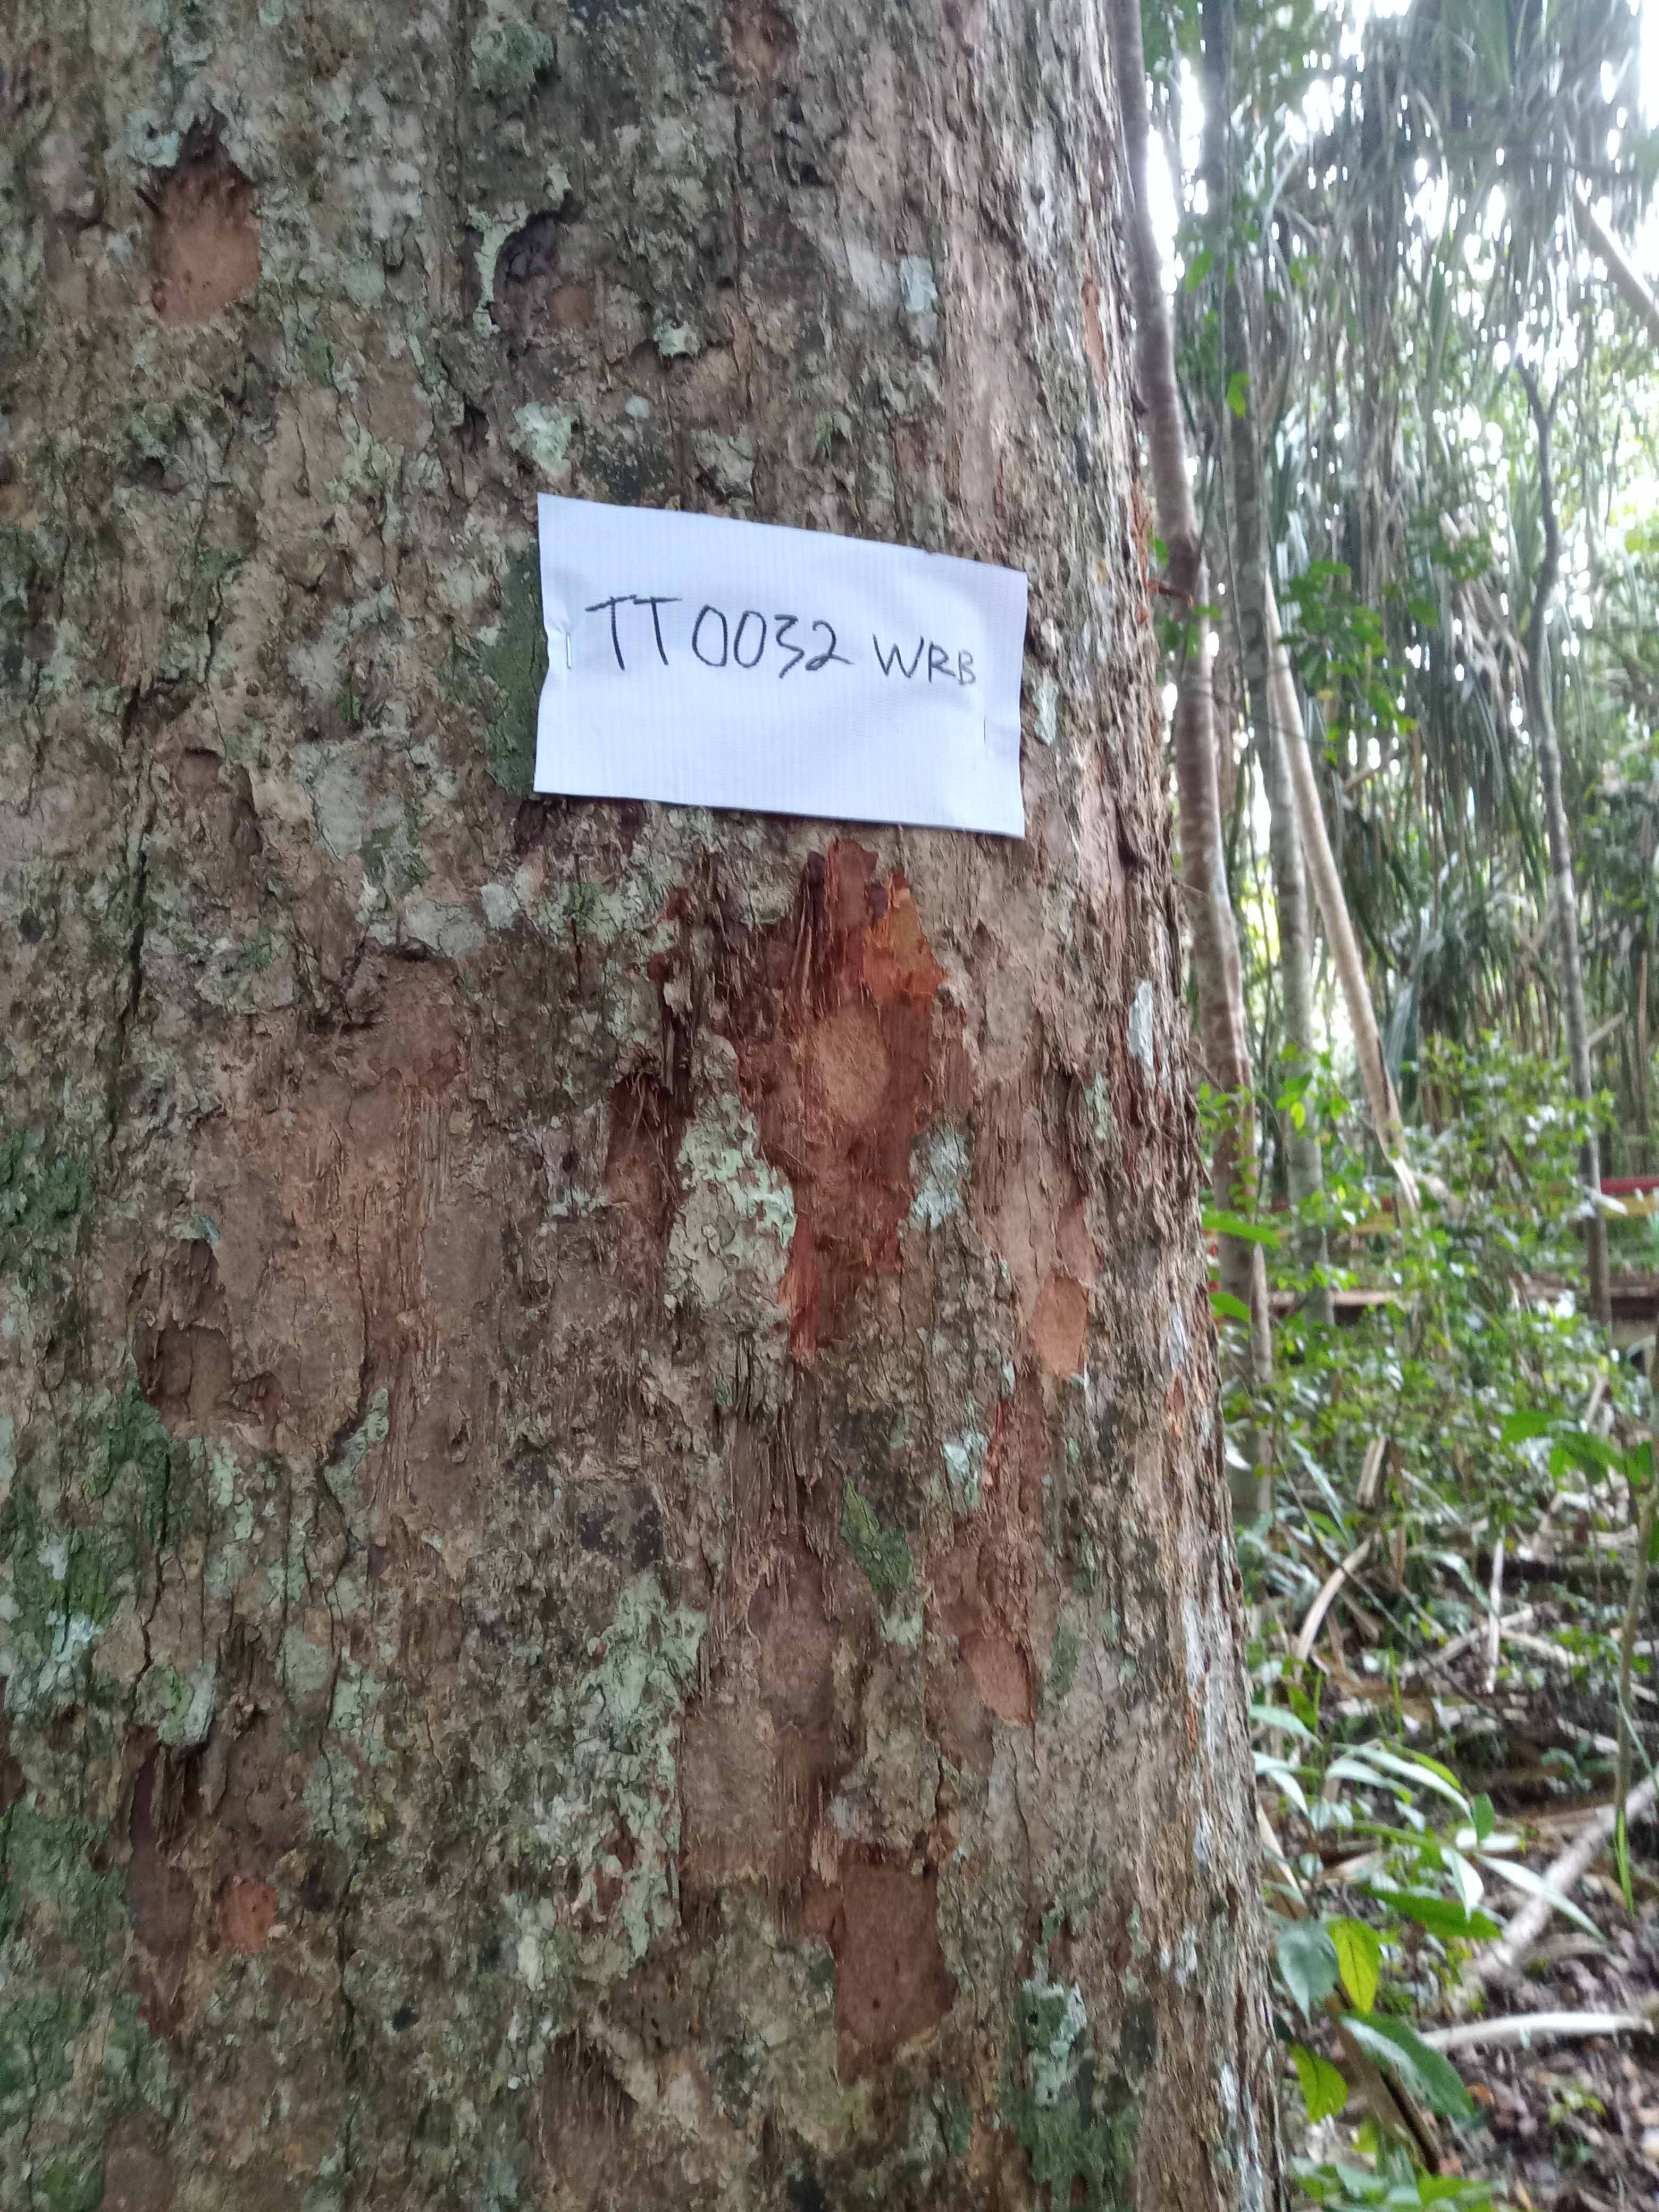 TT0032 WRB